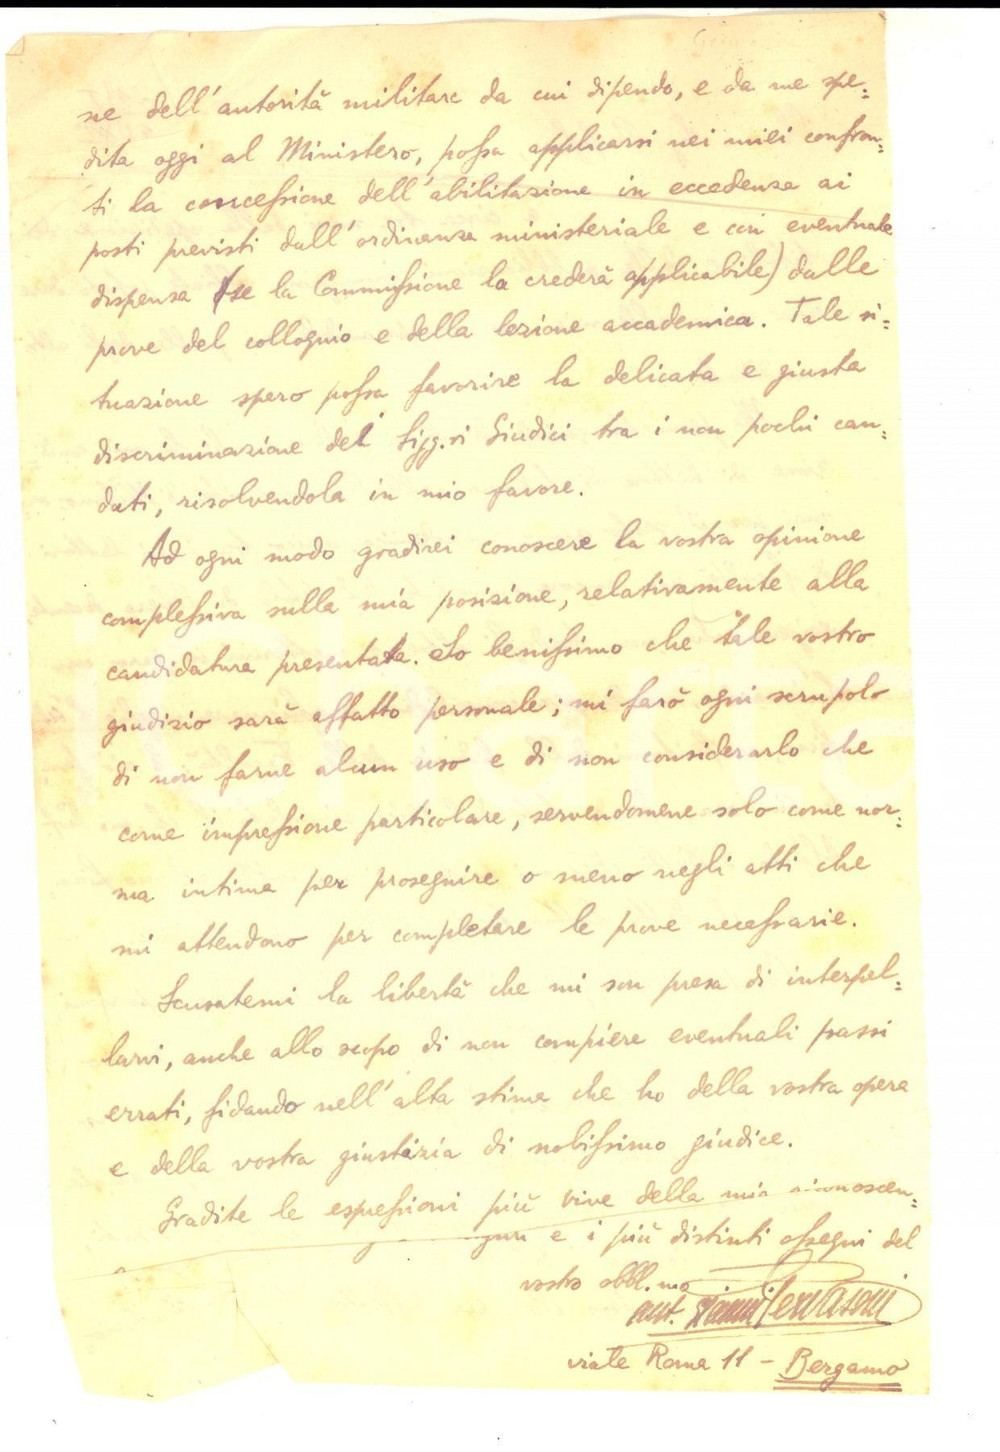 ne dell'autorità militare da cui dipendo, e da me spe=
dita oggi al Ministero, possa applicarsi nei miei confron=
ti la concessione dell'abilitazione in eccedenza ai
posti previsti dall'ordinanza ministeriale e con eventuale
dispensa (se la Commissione la crederà applicabile) dalle
prove del colloquio e della lezione accademica. Tale si=
tuazione spero possa favorire la delicata e giusta
discriminazione dei Sigg.ri Giudici tra i non pochi can=
dati, risolvendola in mio favore.
Ad ogni modo gradirei conoscere la vostra opinione
complessiva sulla mia posizione, relativamente alla
candidatura presentata. So benissimo che tale vostro
giudizio sarà affatto personale; mi farò ogni scrupolo
di non farne alcun uso e di non considerarlo che
come impressione particolare, servendomene solo come nor=
ma intima per proseguire o meno negli atti che
mi attendono per completare le prove necessarie.
Scusatemi la libertà che mi son presa di interpel=
larvi, anche allo scopo di non compiere eventuali passi
errati, fidando nell'alta stima che ho della vostra opera
e della vostra giustizia di nobilissimo giudice.
Gradite le espressioni più vive della mia riconoscen=
e i più distinti ossequi del
vostro obbl.mo
viale Roma 11 - Bergamo